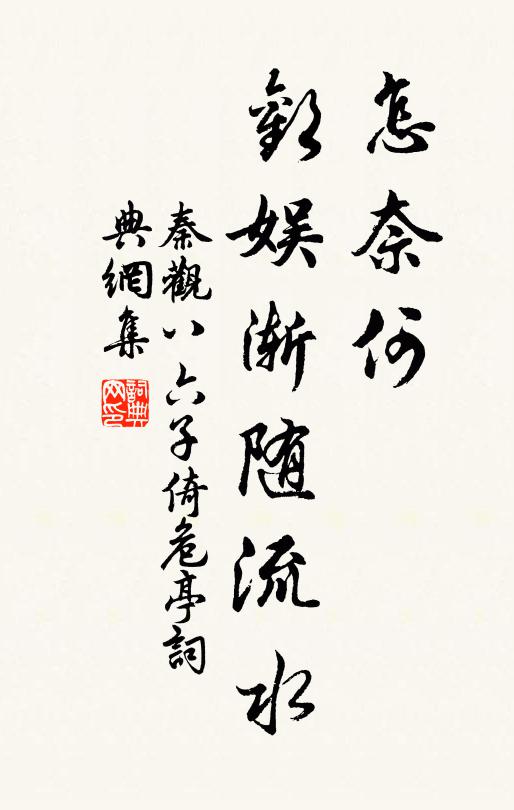 怎奈何
歡娱漸随流水
秦觀八六子倚危亭詞
典網集
詞典網印